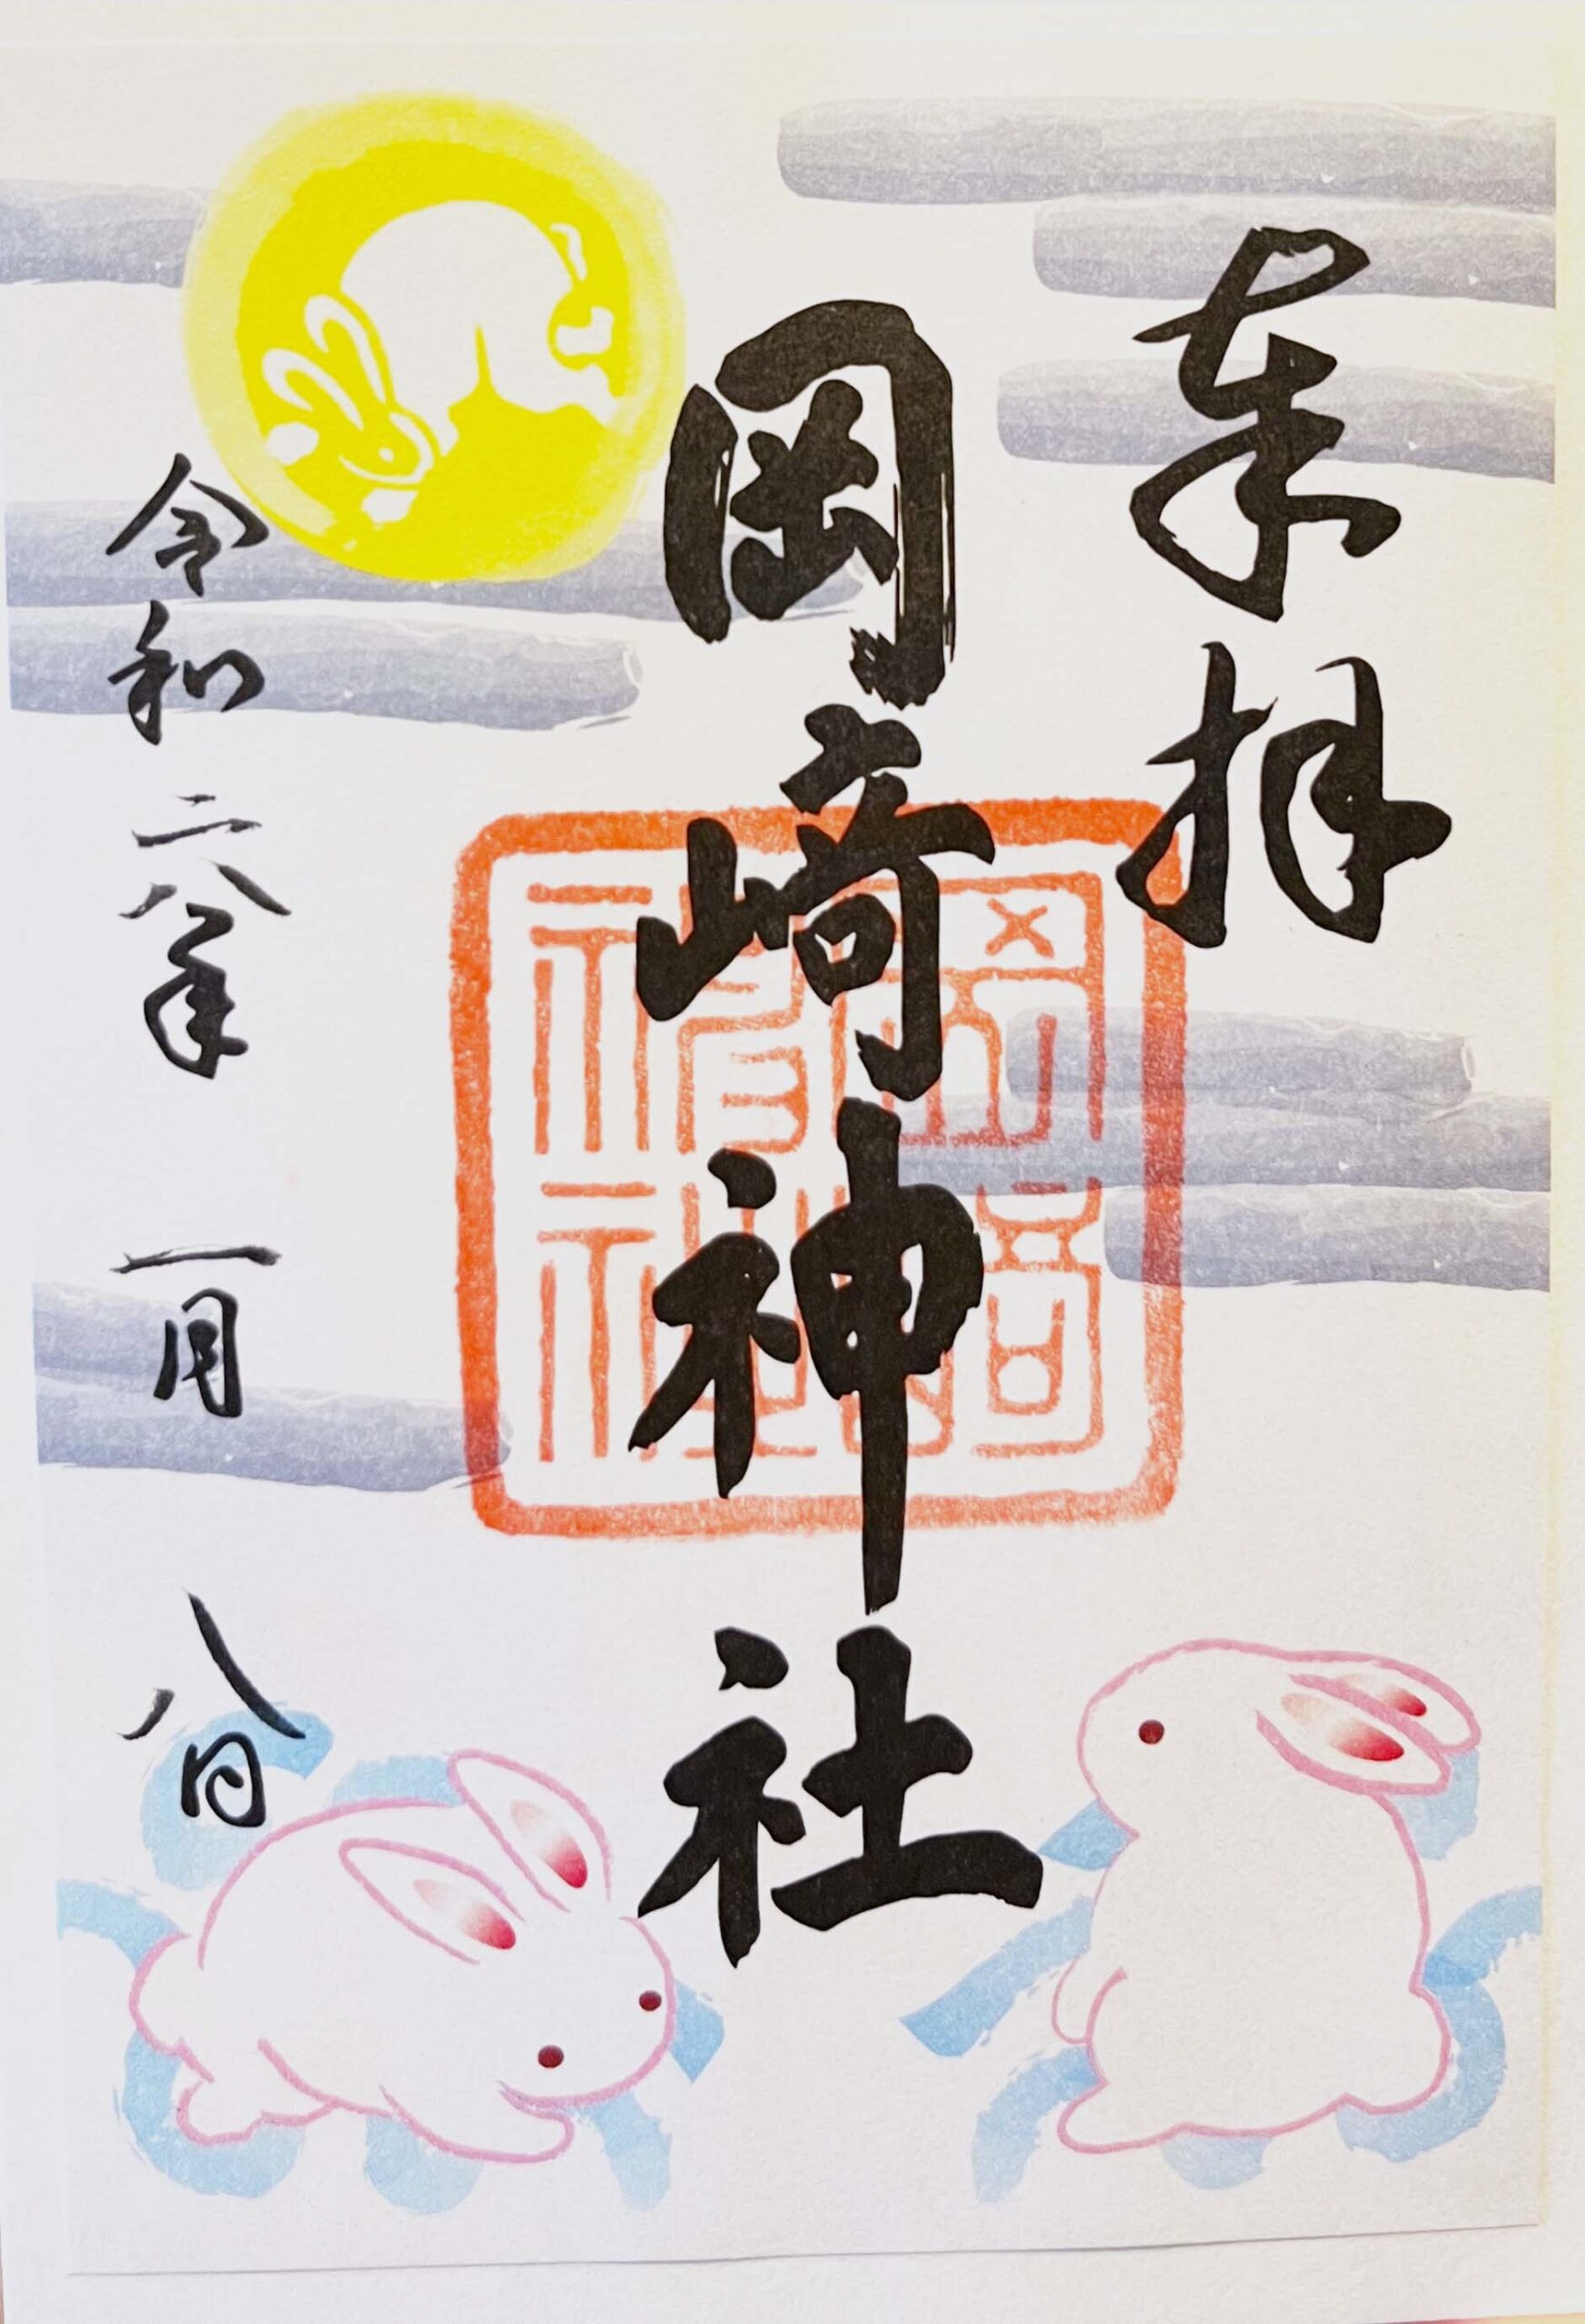 奉拝
岡崎神社
令和六年 一月 八日
岡崎神社